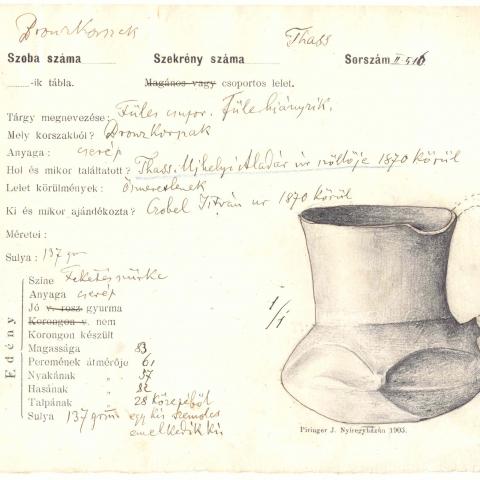 Bronzkorszak
Thass
Szoba száma Szekrény száma Sorszám II 516
-ik tábla. Magános vagy csoportos lelet.
Tárgy megnevezése: Füles csupor. Füle hiányzik.
Mely korszakból? Bronzkorszak
Anyaga: cserép
Hol és mikor találtatott? Thass. Ujhelyi Aladár úr szőllője 1870 körül
Lelet körülmények: Ösmeretlenek
Ki és mikor ajándékozta? Czobel István úr 1870 körül
Méretei:
Sulya: 137 gr
Edény
Szine Feketés szürke
Anyaga cserép
Jó v. rosz gyurma
Korongon v. nem
Korongon készült
Magassága 83
Peremének átmérője 61
Nyakának " 57
Hasának " 82
Talpának " 28 közepéből
Sulya 137 gram egy kis szemölcs
emelkedik ki
1/1
Piringer J. Nyiregyházán 1905.